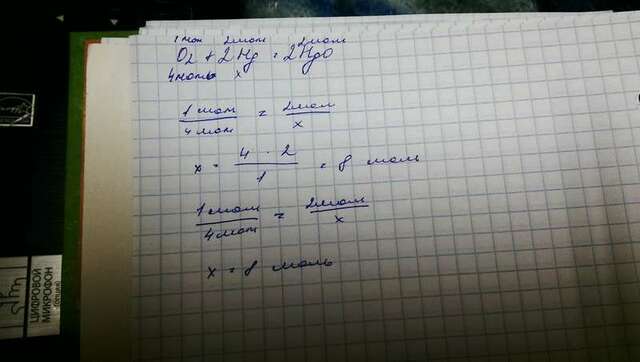 1 мол 2мол 2мол
O2 + 2Hg = 2HgO
4моль x
1 мол / 4 мол = 2мол / x
x = 4 · 2 / 1 = 8 моль
1 мол / 4 мол = 2мол / x
x = 8 моль
ЦИФРОВОЙ
МИКРОФОН